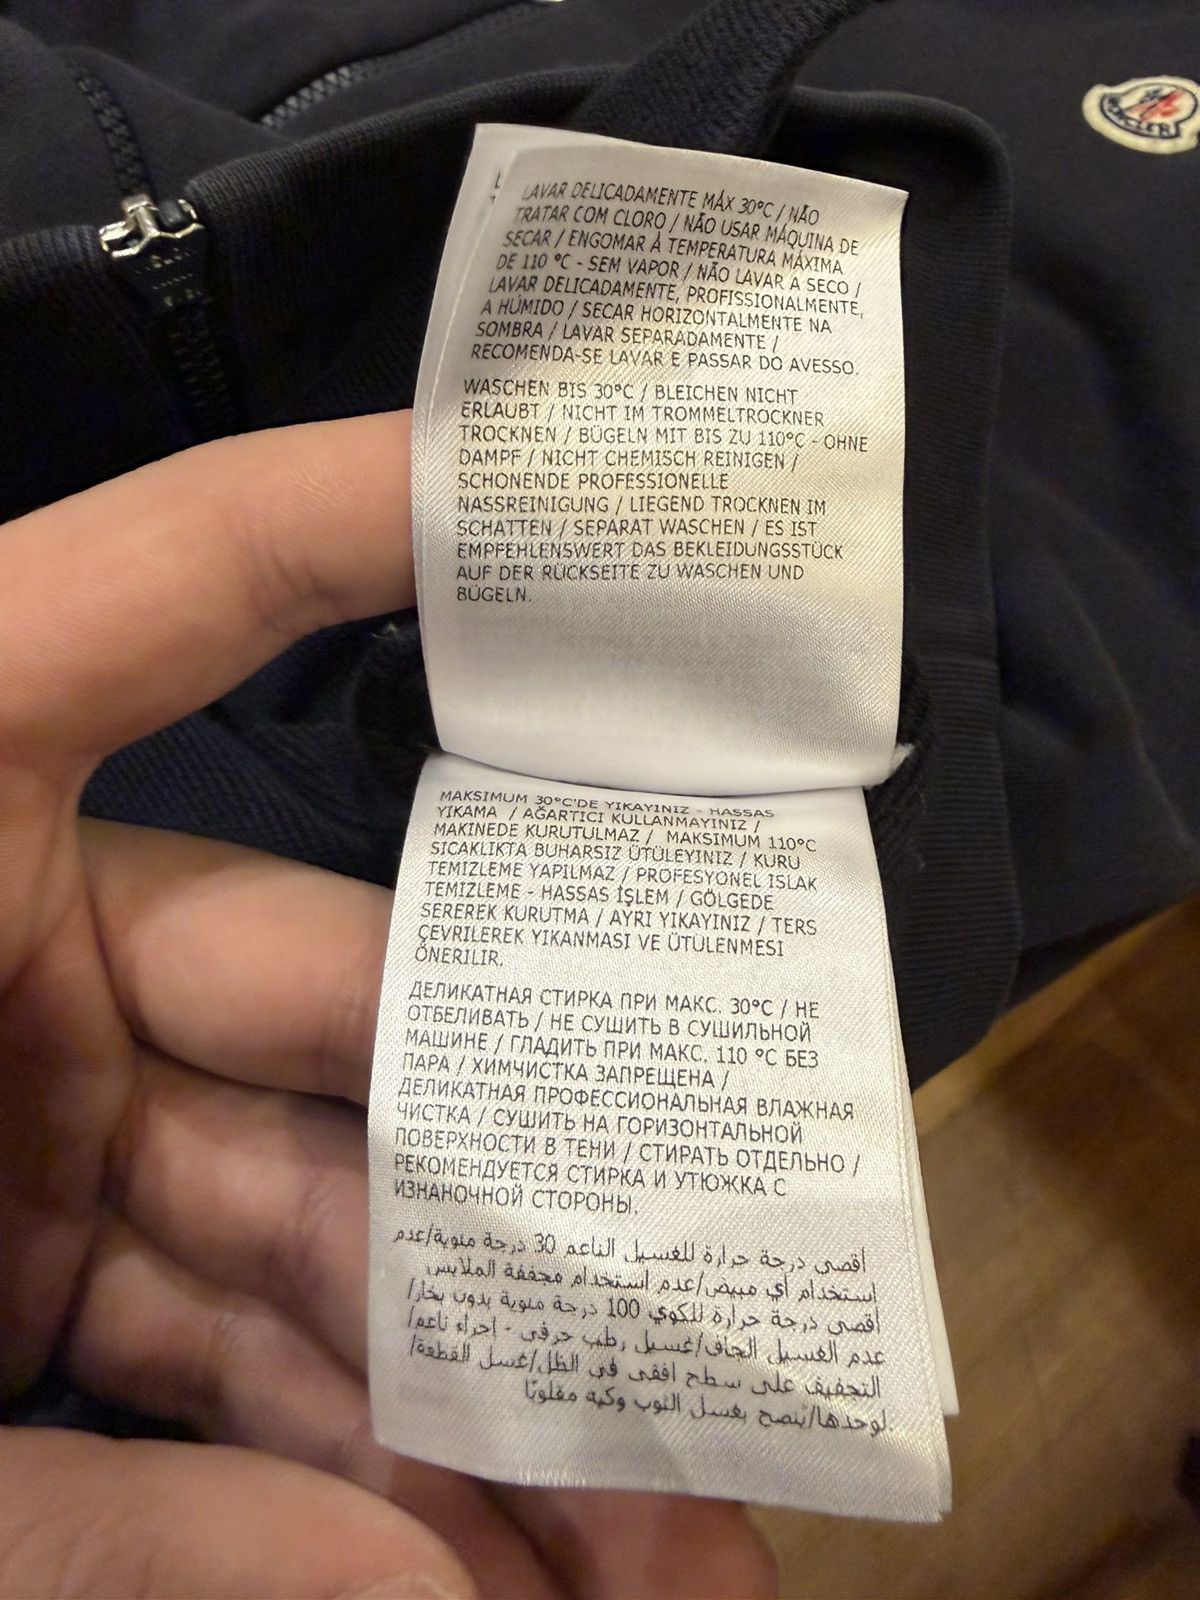 LAVAR DELICADAMENTE MÁX 30°C / NÃO
TRATAR COM CLORO / NÃO USAR MÁQUINA DE
SECAR / ENGOMAR À TEMPERATURA MÁXIMA
DE 110 °C - SEM VAPOR / NÃO LAVAR A SECO /
LAVAR DELICADAMENTE, PROFISSIONALMENTE,
A HÚMIDO / SECAR HORIZONTALMENTE NA
SOMBRA / LAVAR SEPARADAMENTE /
RECOMENDA-SE LAVAR E PASSAR DO AVESSO.
WASCHEN BIS 30°C / BLEICHEN NICHT
ERLAUBT / NICHT IM TROMMELTROCKNER
TROCKNEN / BÜGELN MIT BIS ZU 110°C - OHNE
DAMPF / NICHT CHEMISCH REINIGEN /
SCHONENDE PROFESSIONELLE
NASSREINIGUNG / LIEGEND TROCKNEN IM
SCHATTEN / SEPARAT WASCHEN / ES IST
EMPFEHLENSWERT DAS BEKLEIDUNGSSTÜCK
AUF DER RÜCKSEITE ZU WASCHEN UND
BÜGELN.
MAKSIMUM 30°C'DE YIKAYINIZ - HASSAS
YIKAMA / AĞARTICI KULLANMAYINIZ /
MAKINEDE KURUTULMAZ / MAKSIMUM 110°C
SICAKLIKTA BUHARSIZ ÜTÜLEYINIZ / KURU
TEMIZLEME YAPILMAZ / PROFESYONEL ISLAK
TEMIZLEME - HASSAS İŞLEM / GÖLGEDE
SEREREK KURUTMA / AYRI YIKAYINIZ / TERS
ÇEVRILEREK YIKANMASI VE ÜTÜLENMESI
ÖNERILIR.
ДЕЛИКАТНАЯ СТИРКА ПРИ МАКС. 30°C / НЕ
ОТБЕЛИВАТЬ / НЕ СУШИТЬ В СУШИЛЬНОЙ
МАШИНЕ / ГЛАДИТЬ ПРИ МАКС. 110 °C БЕЗ
ПАРА / ХИМЧИСТКА ЗАПРЕЩЕНА /
ДЕЛИКАТНАЯ ПРОФЕССИОНАЛЬНАЯ ВЛАЖНАЯ
ЧИСТКА / СУШИТЬ НА ГОРИЗОНТАЛЬНОЙ
ПОВЕРХНОСТИ В ТЕНИ / СТИРАТЬ ОТДЕЛЬНО /
РЕКОМЕНДУЕТСЯ СТИРКА И УТЮЖКА С
ИЗНАНОЧНОЙ СТОРОНЫ.
أقصى درجة حرارة للغسيل الناعم 30 درجة مئوية/عدم
استخدام أي مبيض/عدم استخدام مجففة الملابس
أقصى درجة حرارة للكوي 100 درجة مئوية بدون بخار/
عدم الغسيل الجاف/غسيل رطب حرفي - إجراء ناعم/
التجفيف على سطح افقي في الظل/غسل القطعة/
لوحدها/يُنصح بغسل الثوب وكيه مقلوبًا
MONCLER